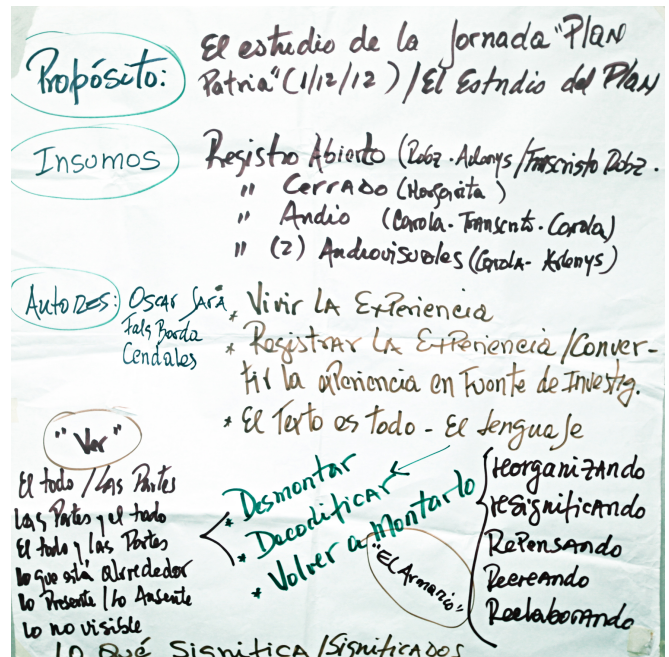 Propósito:
El estudio de la Jornada "Plan
Patria" (1/12/12) / El Estudio del Plan
Insumos
Registro Abierto (Robz. Arlenys / Transcrito Robz.
" Cerrado (Margarita)
" Audio (Carola - Transcrito - Carola)
" (2) Audiovisuales (Carola - Arlenys)
Autores: Oscar Jara
Fals Borda
Cendales
* Vivir la Experiencia
* Registrar la Experiencia / Conver-
tir la experiencia en Fuente de Investig.
* El Texto es todo - El lenguaje
"Ver"
El todo / Las Partes
Las Partes y el todo
El todo y las Partes
lo que está alrededor
lo Presente / lo Ausente
lo no visible
* Desmontar
* Decodificar
* Volver a Montarlo
"El Armario"
reorganizando
resignificando
Repensando
Recreando
Reelaborando
Lo Qué Significa / Significados